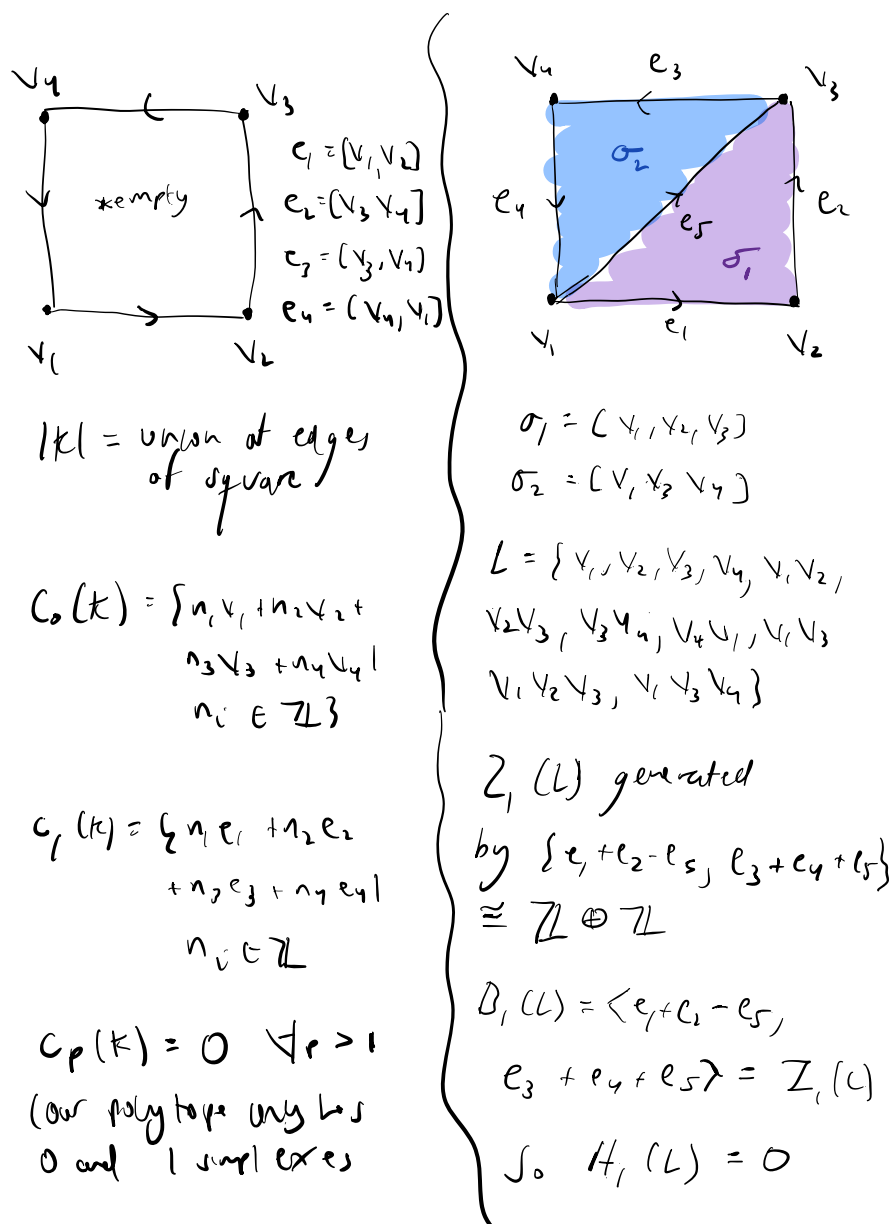 V4
V3
*empty
V1
V2
e1 = [V1, V2]
e2 = [V3 V4]
e3 = [V3, V4]
e4 = [V4, V1]
|K| = union of edges
of square
C0(K) = {n1V1 + n2V2 +
n3V3 + n4V4 |
ni ∈ ℤ}
C1(K) = {n1e1 + n2e2
+ n3e3 + n4e4 |
ni ∈ ℤ
Cp(K) = 0 ∀p > 1
(our polytope only has
0 and 1 simplexes
V4
e3
V3
σ2
e4
e5
e2
σ1
V1
e1
V2
σ1 = [V1, V2, V3]
σ2 = [V1 V3 V4]
L = {V1, V2, V3, V4, V1V2,
V2V3, V3V4, V4V1, V1V3
V1V2V3, V1V3V4}
Z1(L) generated
by {e1 + e2 - e5, e3 + e4 + e5}
≅ ℤ ⊕ ℤ
B1(L) = <e1 + e2 - e5,
e3 + e4 + e5> = Z1(L)
So H1(L) = 0